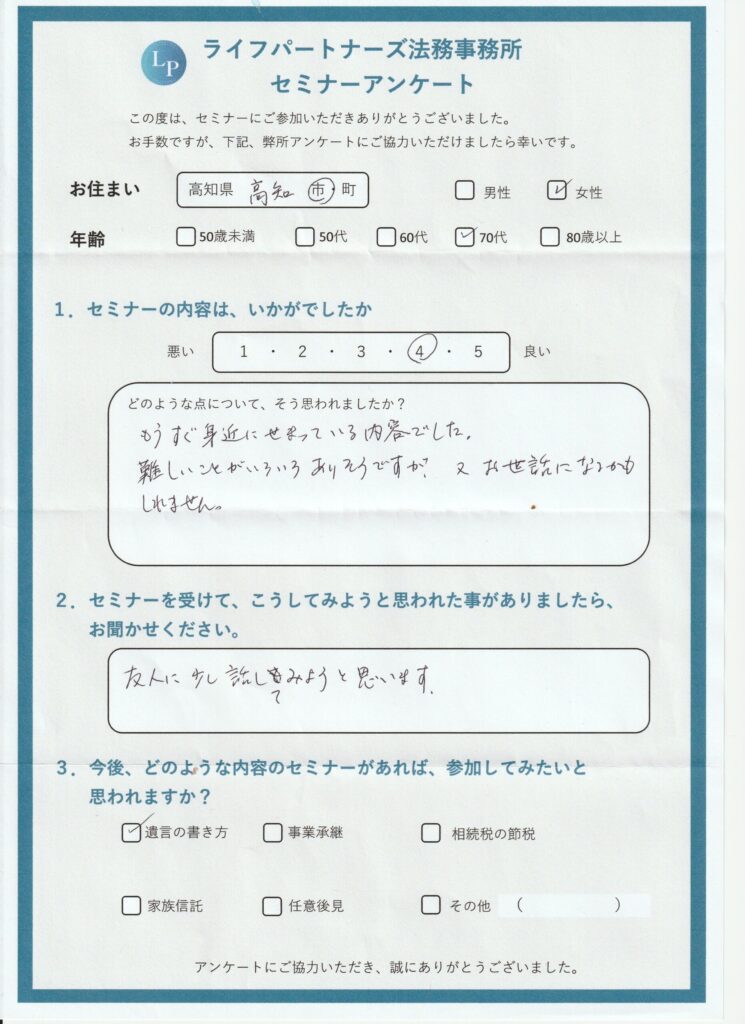 LP
ライフパートナーズ法務事務所
セミナーアンケート
この度は、セミナーにご参加いただきありがとうございました。
お手数ですが、下記、弊所アンケートにご協力いただけましたら幸いです。
お住まい 高知県 高知 市・町 男性 女性
年齢 50歳未満 50代 60代 70代 80歳以上
1．セミナーの内容は、いかがでしたか
悪い 1 ・ 2 ・ 3 ・ 4 ・ 5 良い
どのような点について、そう思われましたか？
もうすぐ身近にせまっている内容でした。
難しいことがいろいろありそうですが、又お世話になるかも
しれません。
2．セミナーを受けて、こうしてみようと思われた事がありましたら、
お聞かせください。
友人に少し話してみようと思います。
3．今後、どのような内容のセミナーがあれば、参加してみたいと
思われますか？
遺言の書き方 事業承継 相続税の節税
家族信託 任意後見 その他 （ ）
アンケートにご協力いただき、誠にありがとうございました。